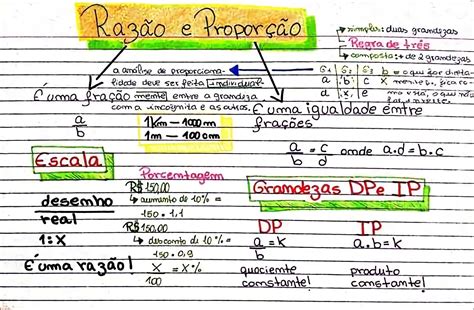 Razão e Proporção
simples: duas grandezas
Regra de três
composta: + de 2 grandezas
a análise de proporciona-
lidade deve ser feita individual-
mente entre a grandeza
com a incógnita e as outras.
G1 G2 G3
a c
d x e
É uma fração
a
b
1km - 1000m
1m - 100cm
É uma igualdade entre
frações
a = c onde a.d = b.c
b d
Escala
desenho
real
1:X
É uma razão!
Porcentagem
R$150,00
aumento de 10% =
150 . 1,1
R$150,00
desconto de 10% =
150 . 0,9
X = X%
100
Grandezas DP e IP
DP
a = K
b
quociente
constante!
IP
a.b = K
produto
constante!